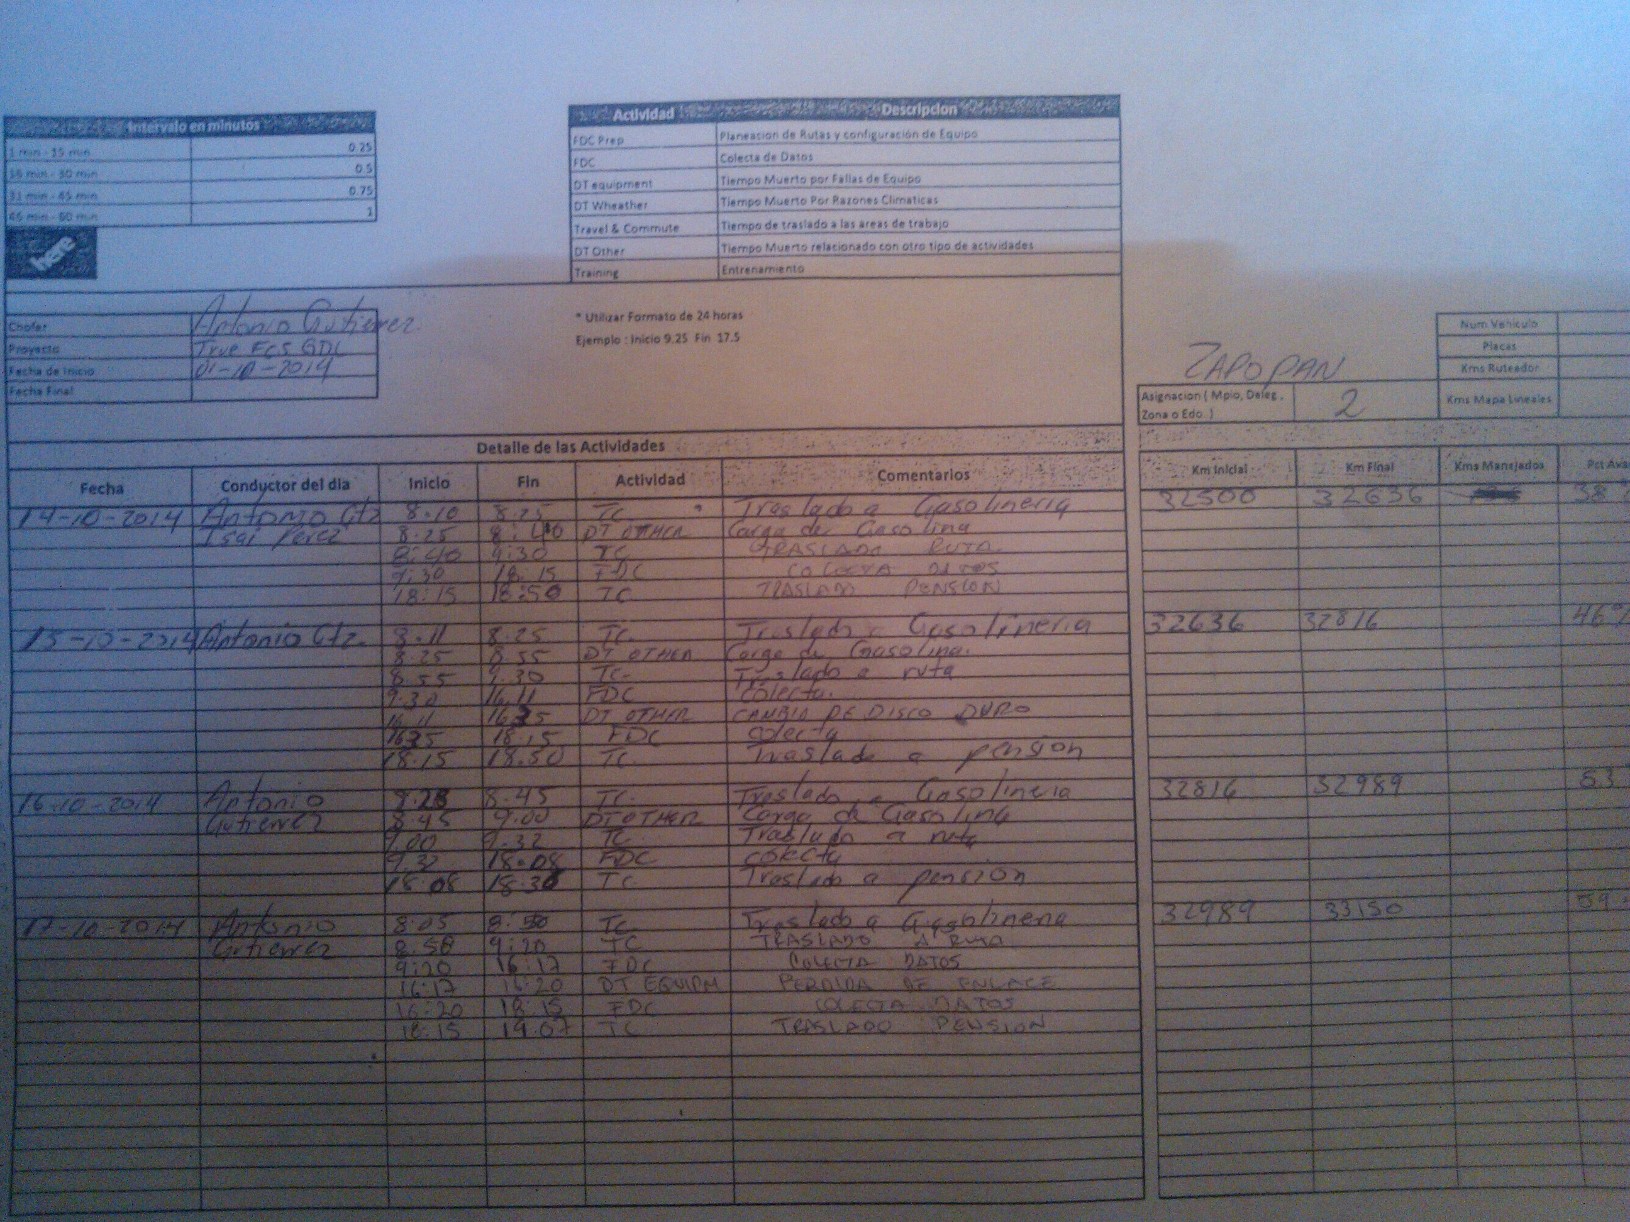 Intervalo en minutos
1 min - 15 min 0.25
16 min - 30 min 0.5
31 min - 45 min 0.75
46 min - 60 min 1
here
Actividad Descripcion
FDC Prep Planeacion de Rutas y configuración de Equipo
FDC Colecta de Datos
DT equipment Tiempo Muerto por Fallas de Equipo
DT Wheather Tiempo Muerto Por Razones Climaticas
Travel & Commute Tiempo de traslado a las areas de trabajo
DT Other Tiempo Muerto relacionado con otro tipo de actividades
Training Entrenamiento
Chofer Antonio Gutierrez
Proyecto True Fcs GDL
Fecha de Inicio 01-10-2014
Fecha Final
* Utilizar Formato de 24 horas
Ejemplo : Inicio 9.25 Fin 17.5
ZAPOPAN
Asignacion ( Mpio, Deleg , Zona o Edo. ) 2
Num Vehiculo
Placas
Kms Ruteador
Kms Mapa Lineales
Detalle de las Actividades
Fecha Conductor del dia Inicio Fin Actividad Comentarios Km Inicial Km Final Kms Manejados Pct Ava
14-10-2014 Antonio Gtz 8.10 8.25 TC Traslado a Gasolineria 32500 32636 38
Isai Perez 8.25 8:40 DT OTHER Carga de Gasolina
8:40 9:30 TC TRASLADO RUTA
9:30 18:15 FDC COLECTA DATOS
18:15 18:50 TC TRASLADO PENSION
15-10-2014 Antonio Gtz. 8.11 8.25 TC. Traslado a Gasolineria 32636 32816 46%
8.25 8.55 DT OTHER Carga de Gasolina.
8.55 9.30 TC. Traslado a ruta
9.30 16.11 FDC colecta.
16.11 16.25 DT OTHER CAMBIO DE DISCO DURO
16.25 18.15 FDC colecta
18.15 18.50 TC. Traslado a pension
16-10-2014 Antonio 8.28 8.45 TC. Traslado a Gasolineria 32816 32989 53
Gutierrez 8.45 9.00 DT OTHER Carga de Gasolina
9.00 9.32 TC Traslado a ruta
9.32 18.08 FDC colecta
18.08 18.30 TC. Traslado a pension
17-10-2014 Antonio 8.05 8:50 TC Traslado a Gasolineria 32989 33150 59
Gutierrez 8:50 9:20 TC TRASLADO A RUTA
9:20 16:17 FDC COLECTA DATOS
16:17 16:20 DT EQUIPM PERDIDA DE ENLACE
16:20 18:15 FDC COLECTA DATOS
18:15 19.07 TC TRASLADO PENSION